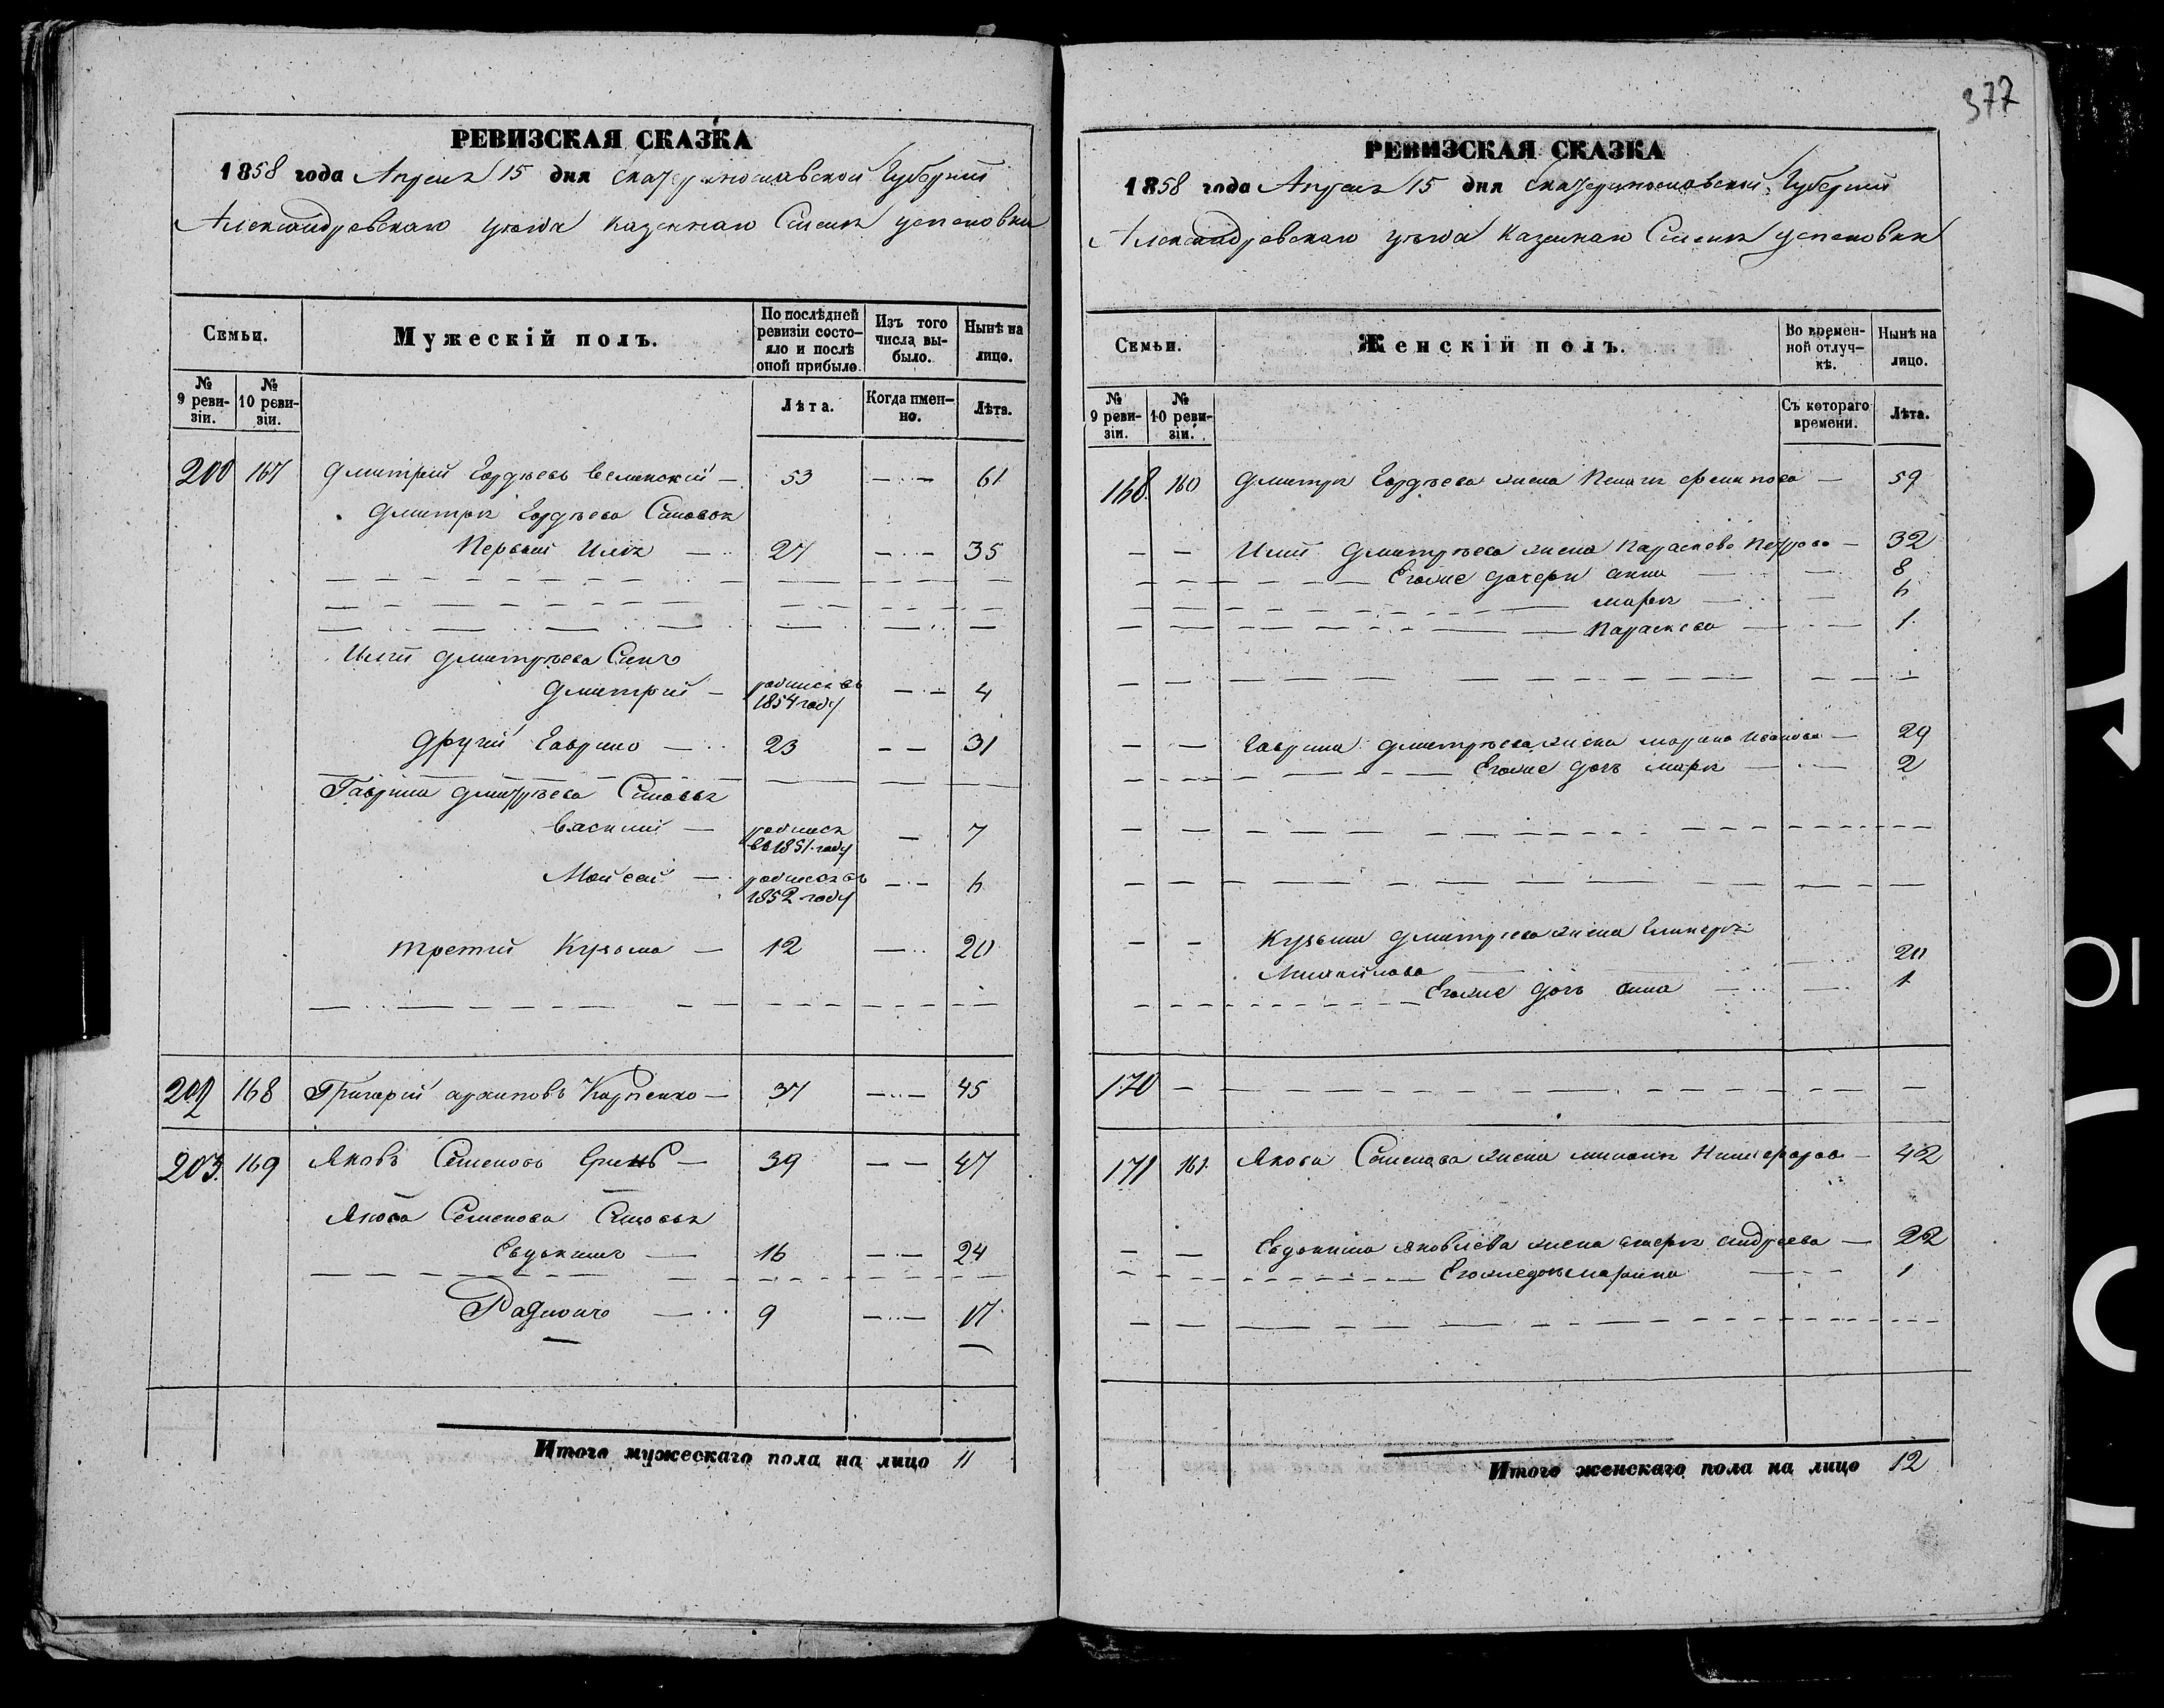 377
РЕВИЗСКАЯ СКАЗКА
1858 года Апреля 15 дня Екатеринославской Губернии
Александровскаго уезда Казеннаго Селенія Успеновки
Семьи.
Мужескій полъ.
По послѣдней ревизіи состо-
яло и послѣ
оной прибыло.
Изъ того
числа вы-
было.
Нынѣ на
лицо.
№
9 реви-
зіи.
№
10 реви-
зіи.
Лѣта.
Когда имен-
но.
Лѣта.
200 167 Дмитрий Гордѣевъ — 53 — 61
Дмитрія Гордѣева Сыновья
Первый Илія — 27 — 35
Иліи Дмитріева Сынъ
Дмитрий — родился въ 4
1854 году
Другій Гаврило — 23 — — 31
Гаврила Дмитріева Сыновья
Василий — родился — 7
въ 1851 году
Моисей — родился въ — 6
1852 году
третий Кузьма — 12 — 20
202 168 Григорий Архиповъ Карпенко — 37 — 45
203 169 Яковъ Семеновъ — 39 — — 47
Якова Семенова Сыновья
Евдокимъ — 16 — 24
Радионъ — 9 — 17
Итого мужескаго пола на лицо 11
РЕВИЗСКАЯ СКАЗКА
1858 года Апреля 15 дня Екатеринославской Губернии
Александровскаго уезда Казеннаго Селенія Успеновки
Семьи.
Женскій полъ.
Во времен-
ной отлуч-
кѣ.
Нынѣ на
лицо.
№
9 реви-
зіи.
№
10 реви-
зіи.
Съ котораго
времени.
Лѣта.
168 160 Дмитрія Гордѣева жена — 59
— — Иліи Дмитріева жена Параскева Петрова — 32
Егоже дочери Анна — 8
Марія — 6
Параскева — 1
— — Гаврила Дмитріева жена Марина Иванова — 29
Егоже дочь Марія — 2
— — Кузьмы Дмитріева жена Гликерія
Михайлова — 20
Егоже дочь Анна — 1
170
171 161 Якова Семенова жена — 42
— — Евдокима Яковлева жена Андреева — 22
Егоже дочь Марина — 1
Итого женскаго пола на лицо 12